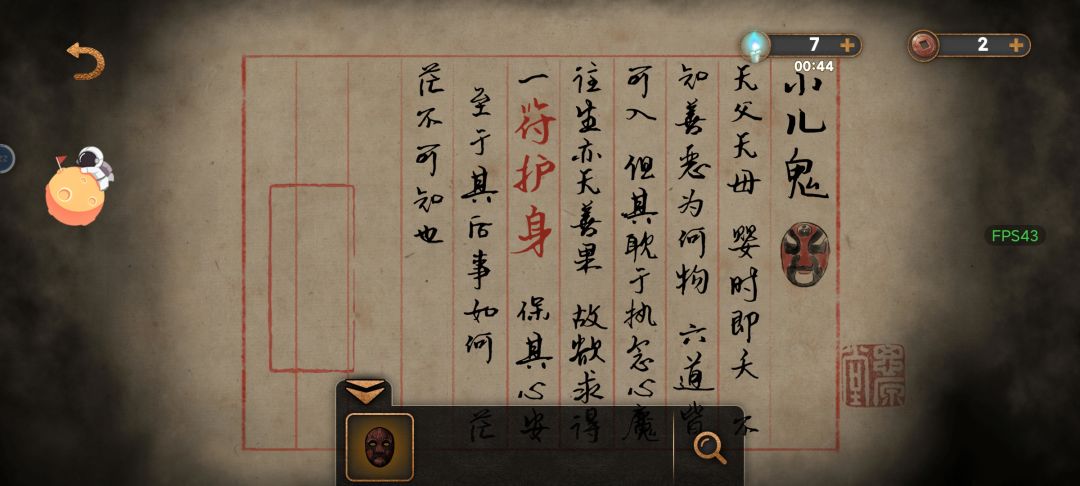 7
00:44
2
小儿鬼
无父无母 婴时即夭 不
知善恶为何物 六道皆
可入 但其耽于执念心魔
往生亦无善果 故欲求得
一符护身 保其心安
至于其后事如何 茫
茫不可知也
FPS43